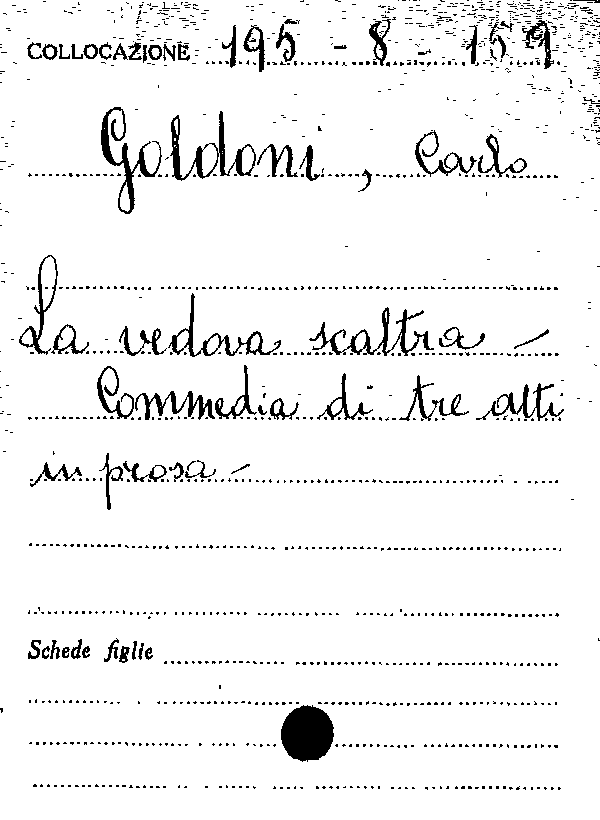 COLLOCAZIONE 195 - 8 - 159
Goldoni, Carlo
La vedova scaltra -
Commedia di tre atti
in prosa -
Schede figlie